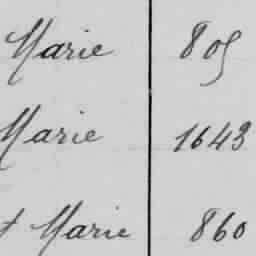 Marie 805
Marie 1643
t Marie 860